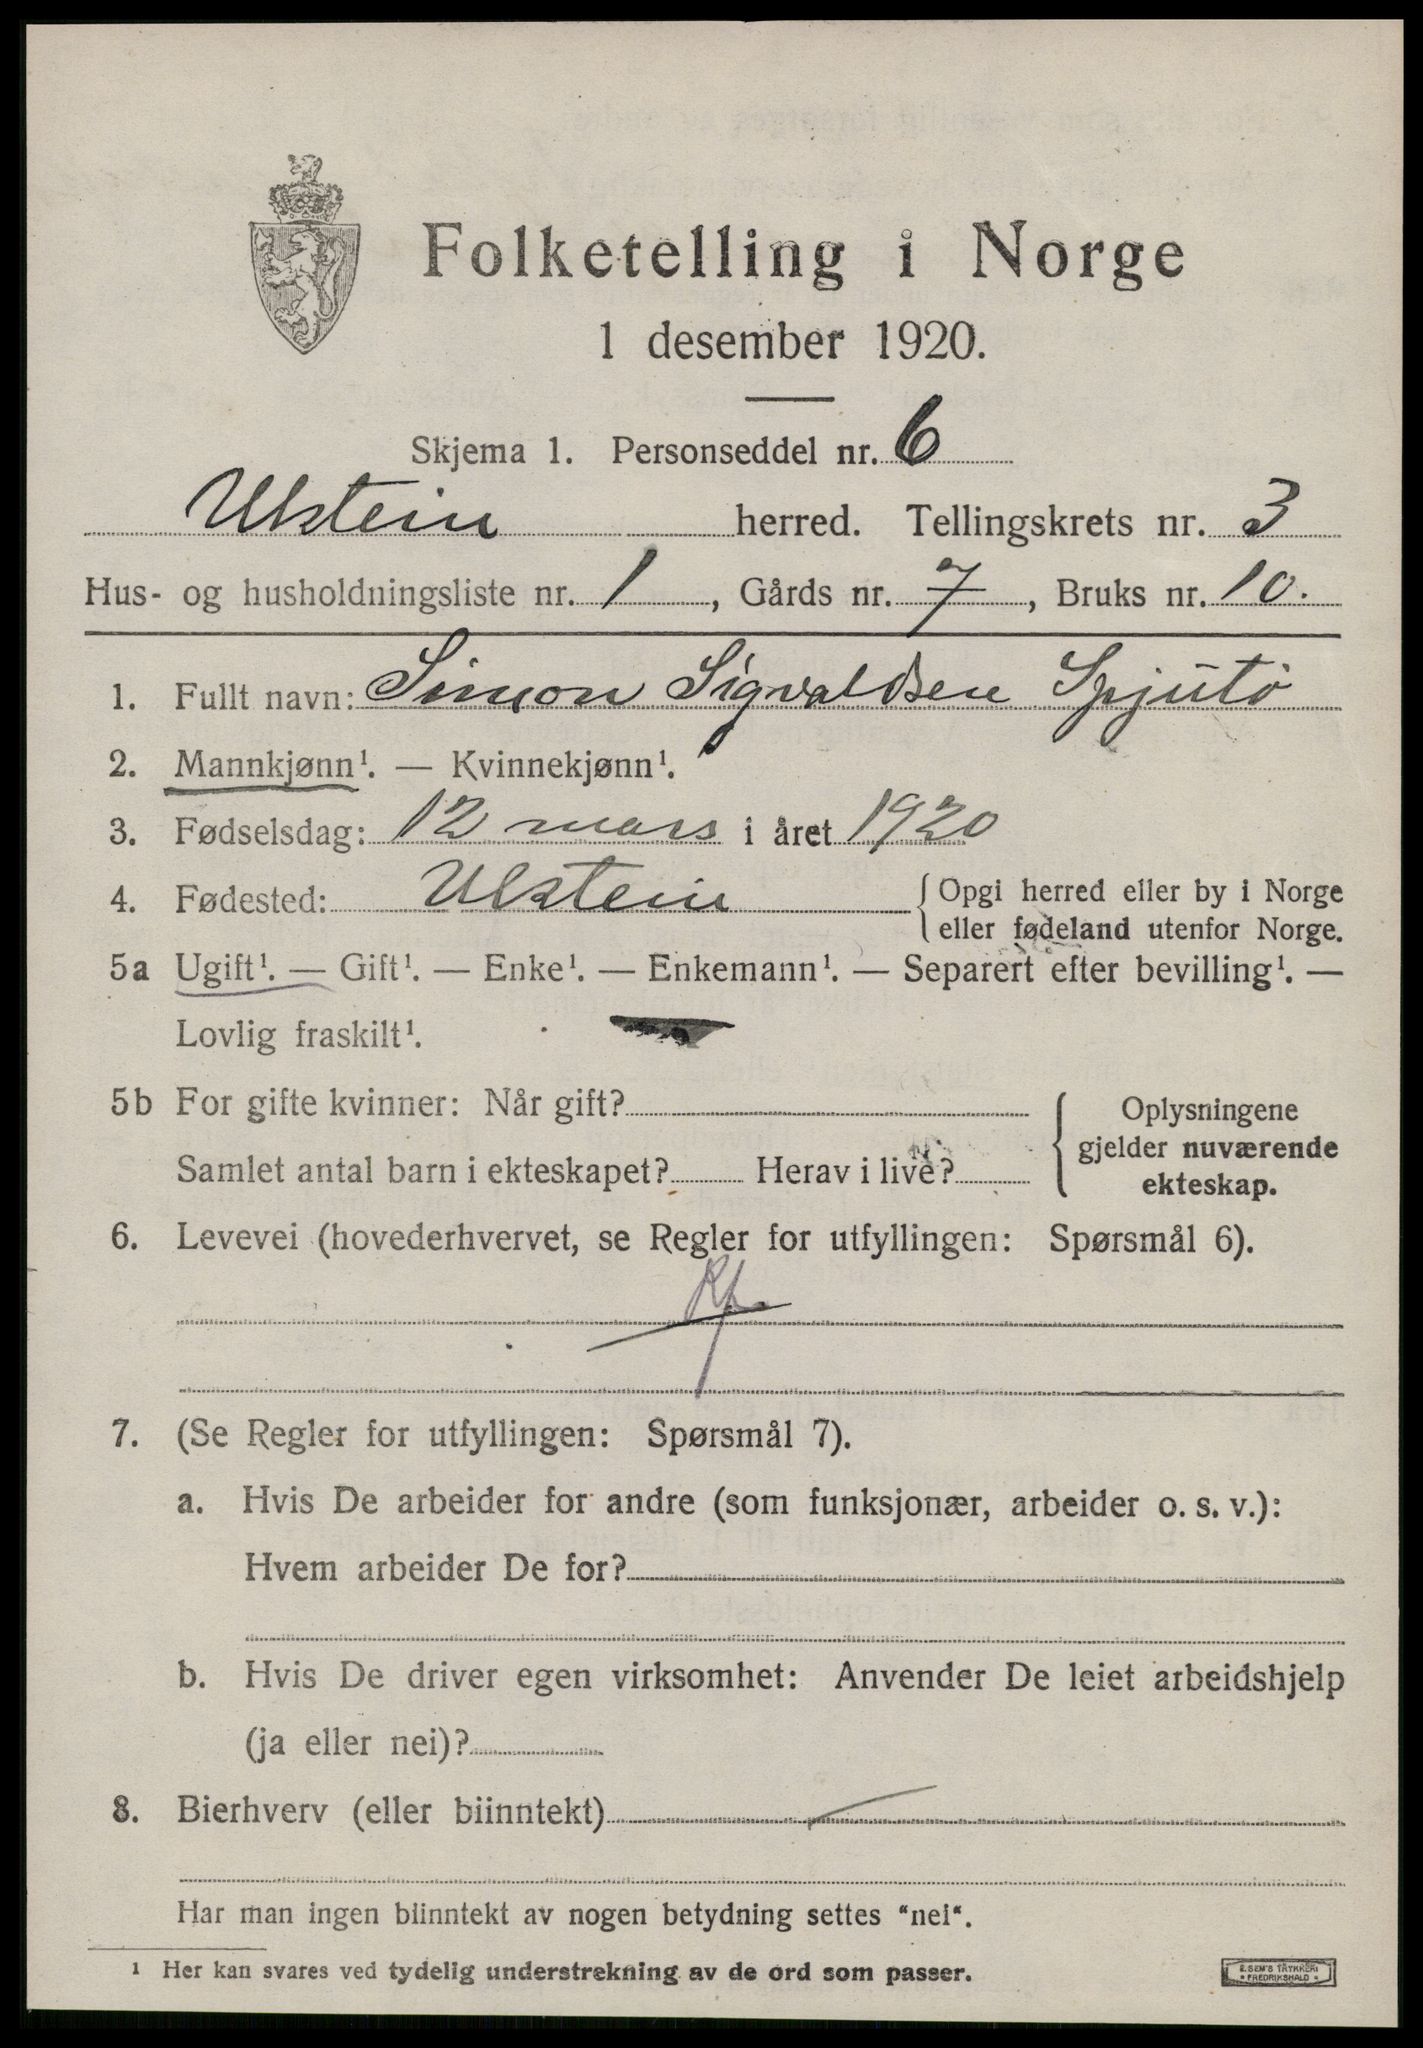 Folketelling i Norge
1 desember 1920.
Skjema 1. Personseddel nr. 6
Ulstein herred. Tellingskrets nr. 3
Hus- og husholdningsliste nr. 1, Gårds nr. 7, Bruks nr. 10.
1. Fullt navn: Simon Sigvaldsen Spjutö
2. Mannkjønn¹. — Kvinnekjønn¹.
3. Fødselsdag: 12 mars i året 1920
4. Fødested: Ulstein { Opgi herred eller by i Norge
eller fødeland utenfor Norge.
5a Ugift¹. — Gift¹. — Enke¹. — Enkemann¹. — Separert efter bevilling¹. —
Lovlig fraskilt¹.
5b For gifte kvinner: Når gift?
Samlet antal barn i ekteskapet? Herav i live?
{ Oplysningene
gjelder nuværende
ekteskap.
6. Levevei (hovederhvervet, se Regler for utfyllingen: Spørsmål 6).
7. (Se Regler for utfyllingen: Spørsmål 7).
a. Hvis De arbeider for andre (som funksjonær, arbeider o. s. v.):
Hvem arbeider De for?
b. Hvis De driver egen virksomhet: Anvender De leiet arbeidshjelp
(ja eller nei)?
8. Bierhverv (eller biinntekt) —
Har man ingen biinntekt av nogen betydning settes “nei“.
¹ Her kan svares ved tydelig understrekning av de ord som passer.
E. SEM'S TRYKKERI
* FREDRIKSHALD *